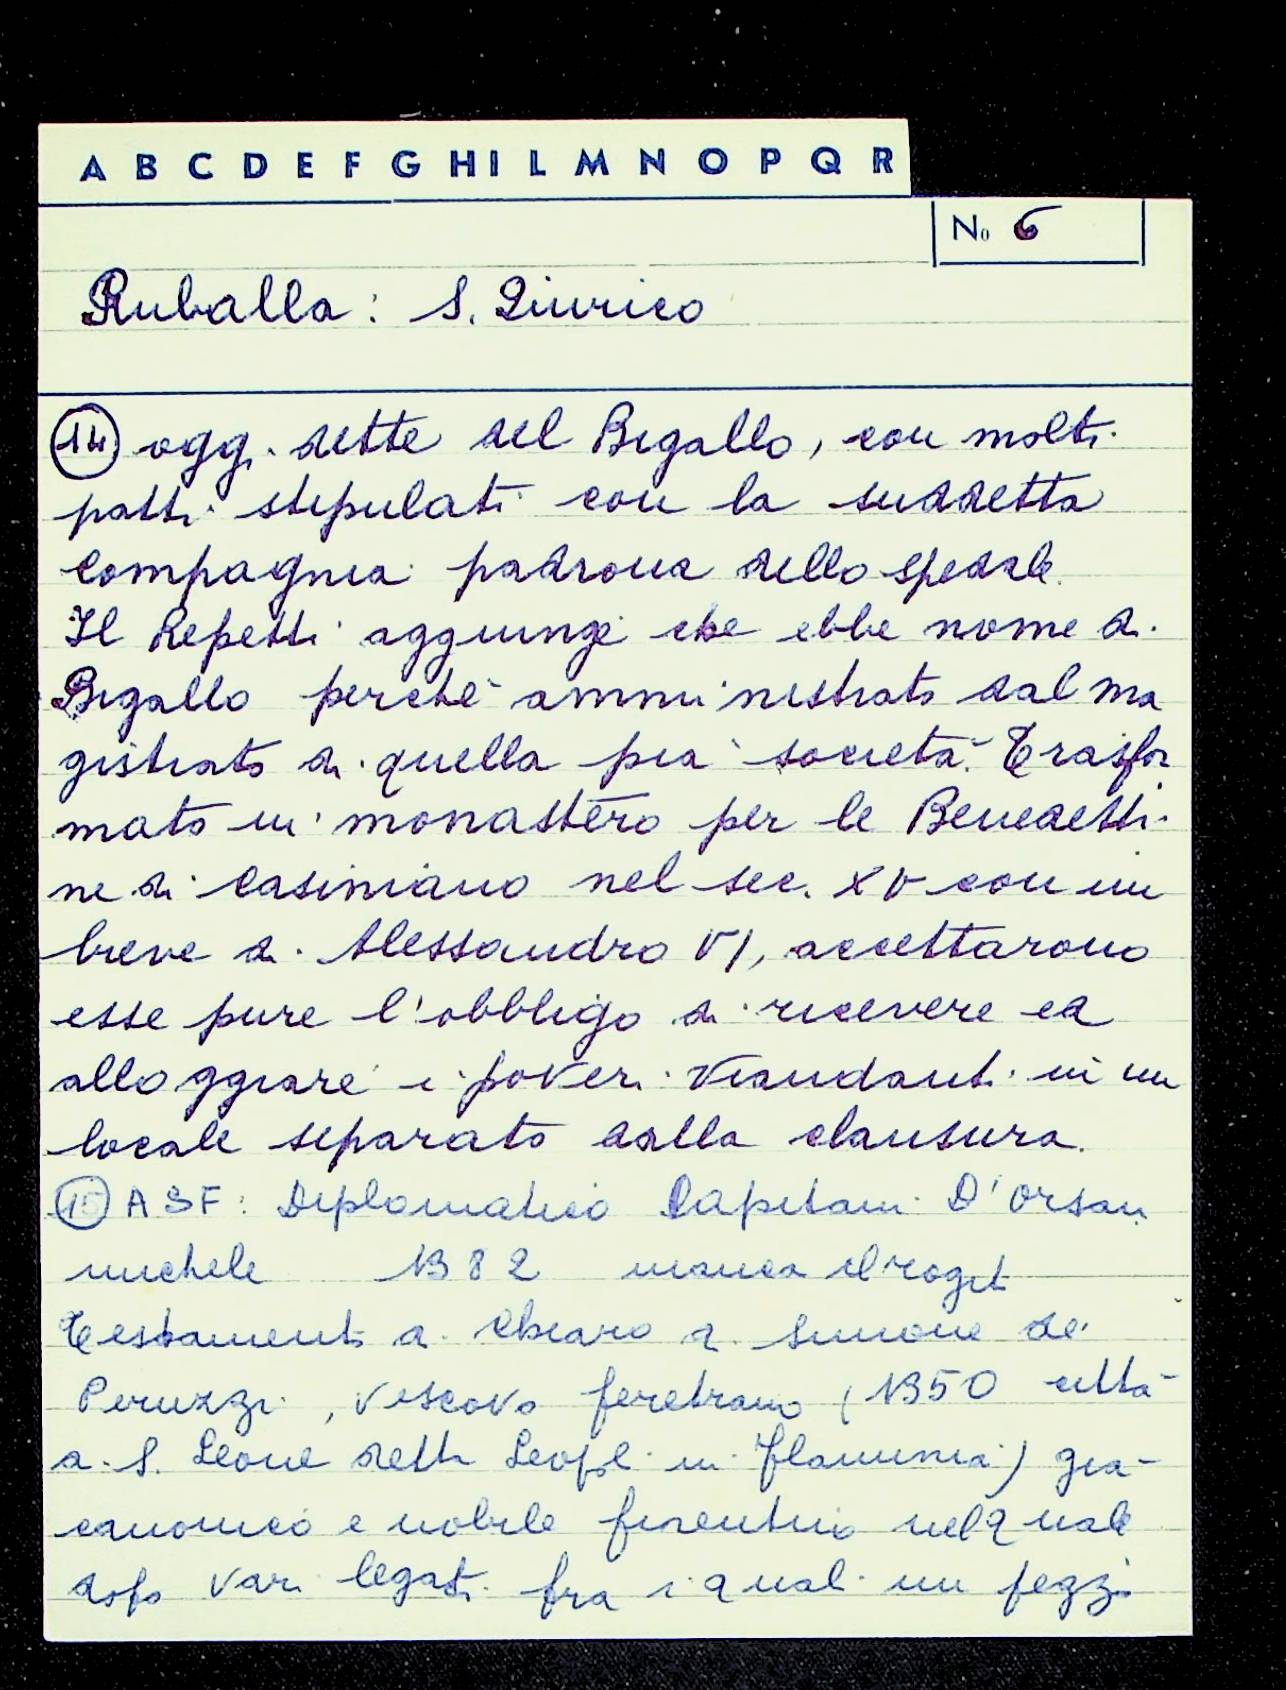 A B C D E F G H I L M N O P Q R
No 6
Ruballa: S. Quirico
14 oggi dette del Bigallo, con molti
patti stipulati con la suddetta
Compagnia padrona dello spedale.
Il Repetti aggiunge che ebbe nome di
Bigallo perchè amministrato dal ma
gistrato di quella pia società. Trasfor
mato in monastero per le Benedetti-
ne di Casiniano nel sec. XV con un
breve di Alessandro VI, accettarono
esse pure l'obbligo di ricevere ed
alloggiare i poveri viandanti in un
locale separato dalla clausura.
15 ASF: Diplomatico Capitani D'Orsan
michele 1382 manca il rogit
Testamento di Chiaro di Simone de'
Peruzzi, vescovo feretrano (1350 città
di S. Leone detta Leopl in Flaminia) già
canonico e nobile fiorentino nel quale
dopo vari legati fra i quali un pezzo